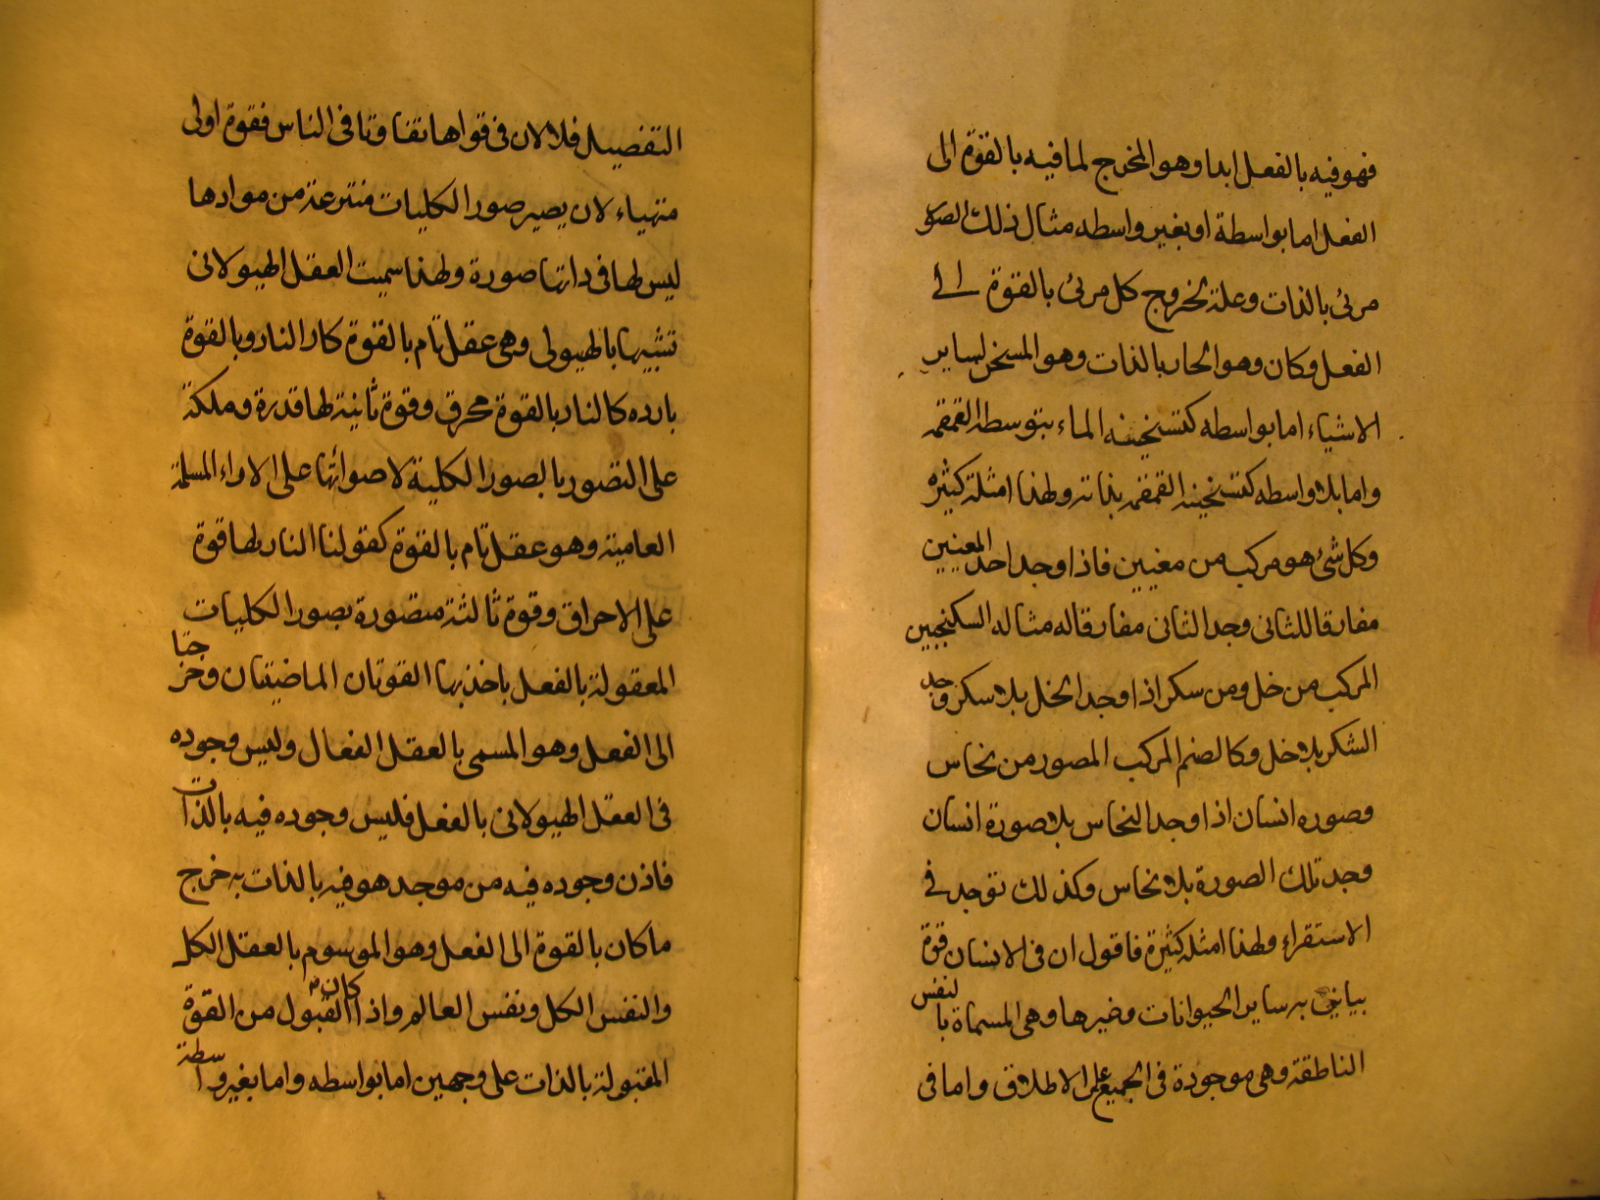 فهو فيه بالفعل ابدا وهو المخرج لما فيه بالقوة الى
الفعل اما بواسطة او بغير واسطه مثال ذلك الضو
مرئ بالذات وعلة لخروج كل مرئ بالقوة الى
الفعل وكان وهو الحار بالذات وهو المسخن لساير
الاشياء اما بواسطه كتسخينه الماء بتوسطه القمقمه
واما بلا واسطه كتسخينه القمقمه بذاته ولهذا امثلة كثيره
وكل شئ هو مركب من معنيين فاذا وجد احد المعنيين
مفارقا للثانى وجد الثانى مفارقا له مثاله السكنجبين
المركب من خل ومن سكر اذا وجد الخل بلا سكر وجد
السكر بلا خل وكالصنم المركب المصور من نحاس
وصوره انسان اذا وجد النحاس بلا صورة انسان
وجد تلك الصورة بلا نحاس وكذلك توجد فى
الاستقراء ولهذا امثله كثيرة فاقول ان فى الانسان قوة
يباين به ساير الحيوانات وغيرها وهى المسماة بالنفس
الناطقة وهى موجودة فى الجميع على الاطلاق واما فى
التفصيل فلا لان فى قواها تفاوتا فى الناس فقوة اولى
متهياء لان يصير صور الكليات منتزعة من موادها
ليس لها فى ذاتها صورة ولهذا سميت العقل الهيولانى
تشبيها بالهيولى وهى عقل تام بالقوة كالنار وبالقوة
بارده كالنار بالقوة محرق وقوة ثانية لها قدرة وملكة
على التصور بالصور الكلية لاحتوائها على الاراء المسلمة
العامية وهو عقل تام بالقوة كقولنا النار لها قوة
على الاحراق وقوة ثالثة متصورة بصور الكليات
المعقولة بالفعل ياخذ بها القوتان الماضيتان وخرجتا
الى الفعل وهو المسمى بالعقل الفعال وليس وجوده
فى العقل الهيولانى بالفعل فليس وجوده فيه بالذات
فاذن وجوده فيه من موجد هو فيه بالذات به خرج
ما كان بالقوة الى الفعل وهو الموسوم بالعقل الكل
والنفس الكل ونفس العالم واذا كان القبول من القوة
المقبولة بالذات على وجهين اما بواسطه واما بغير واسطة